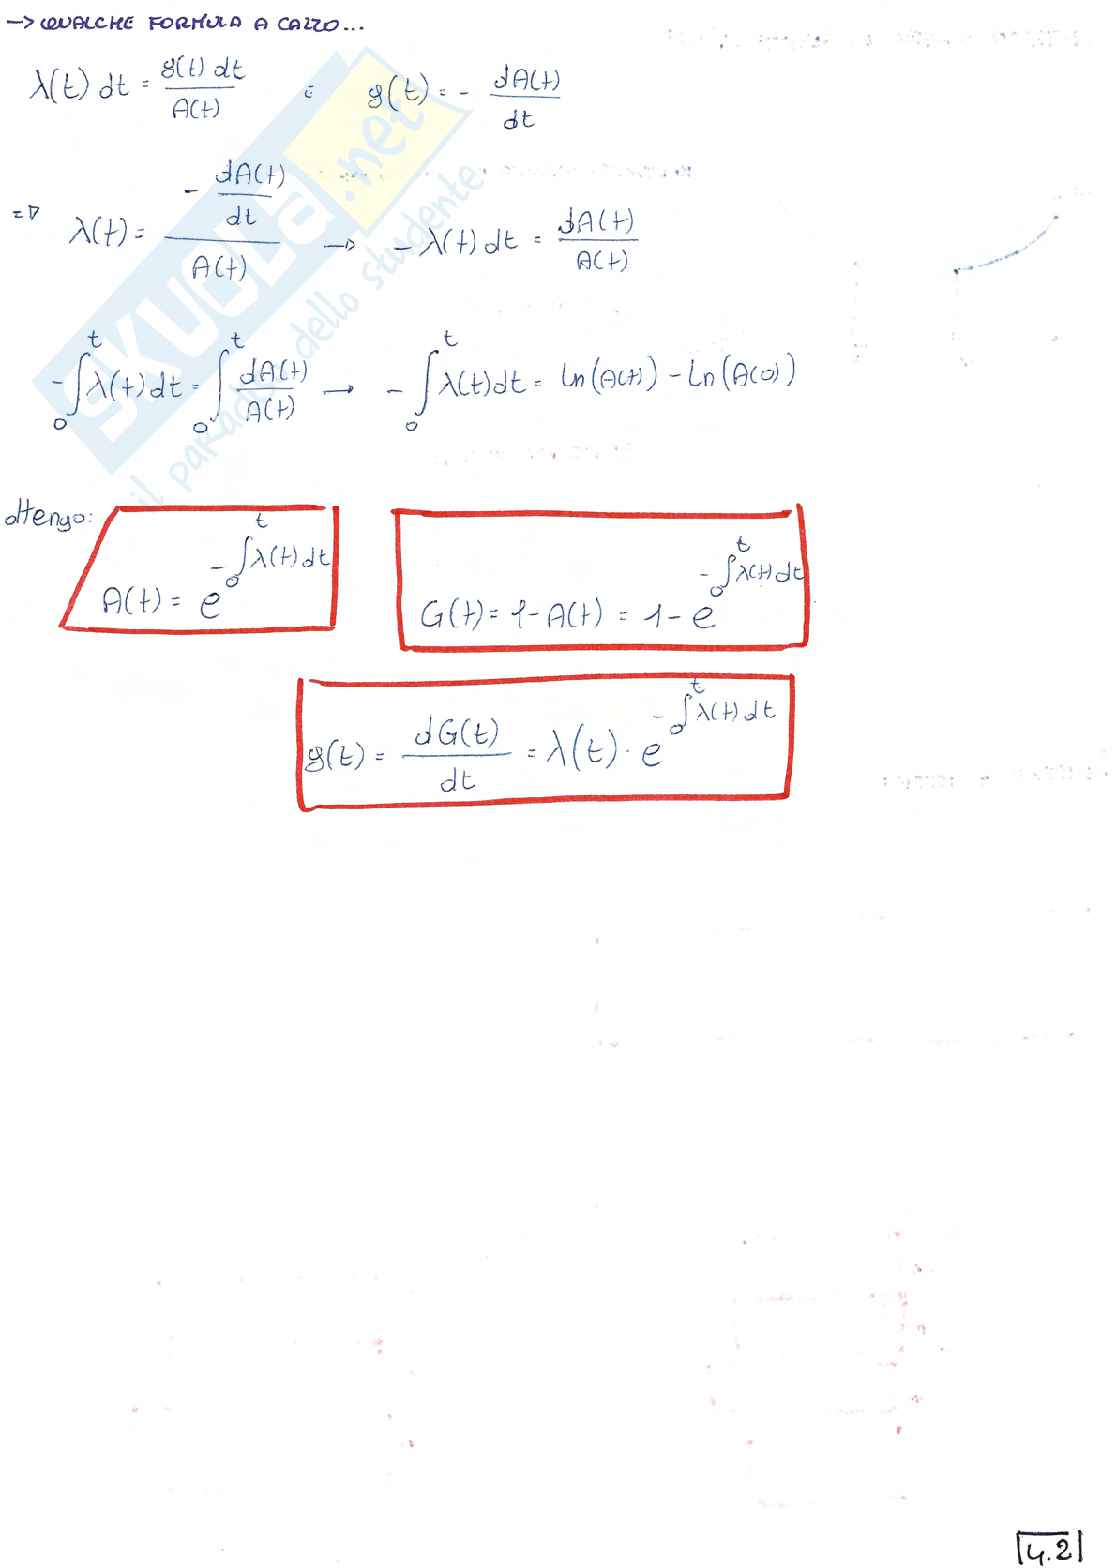 -> QUALCHE FORMULA A CAZZO...
λ(t) dt = g(t) dt / A(t) e g(t) = - dA(t)/dt
=> λ(t) = - dA(t)/dt / A(t) -> - λ(t) dt = dA(t)/A(t)
- ∫₀ᵗ λ(t) dt = ∫₀ᵗ dA(t)/A(t) → - ∫₀ᵗ λ(t) dt = ln(A(t)) - ln(A(0))
ottengo: A(t) = e^(-∫₀ᵗ λ(t) dt) G(t) = 1 - A(t) = 1 - e^(-∫₀ᵗ λ(t) dt)
g(t) = dG(t)/dt = λ(t) · e^(-∫₀ᵗ λ(t) dt)
SKUOLA.net
il paradiso dello studente
4.2